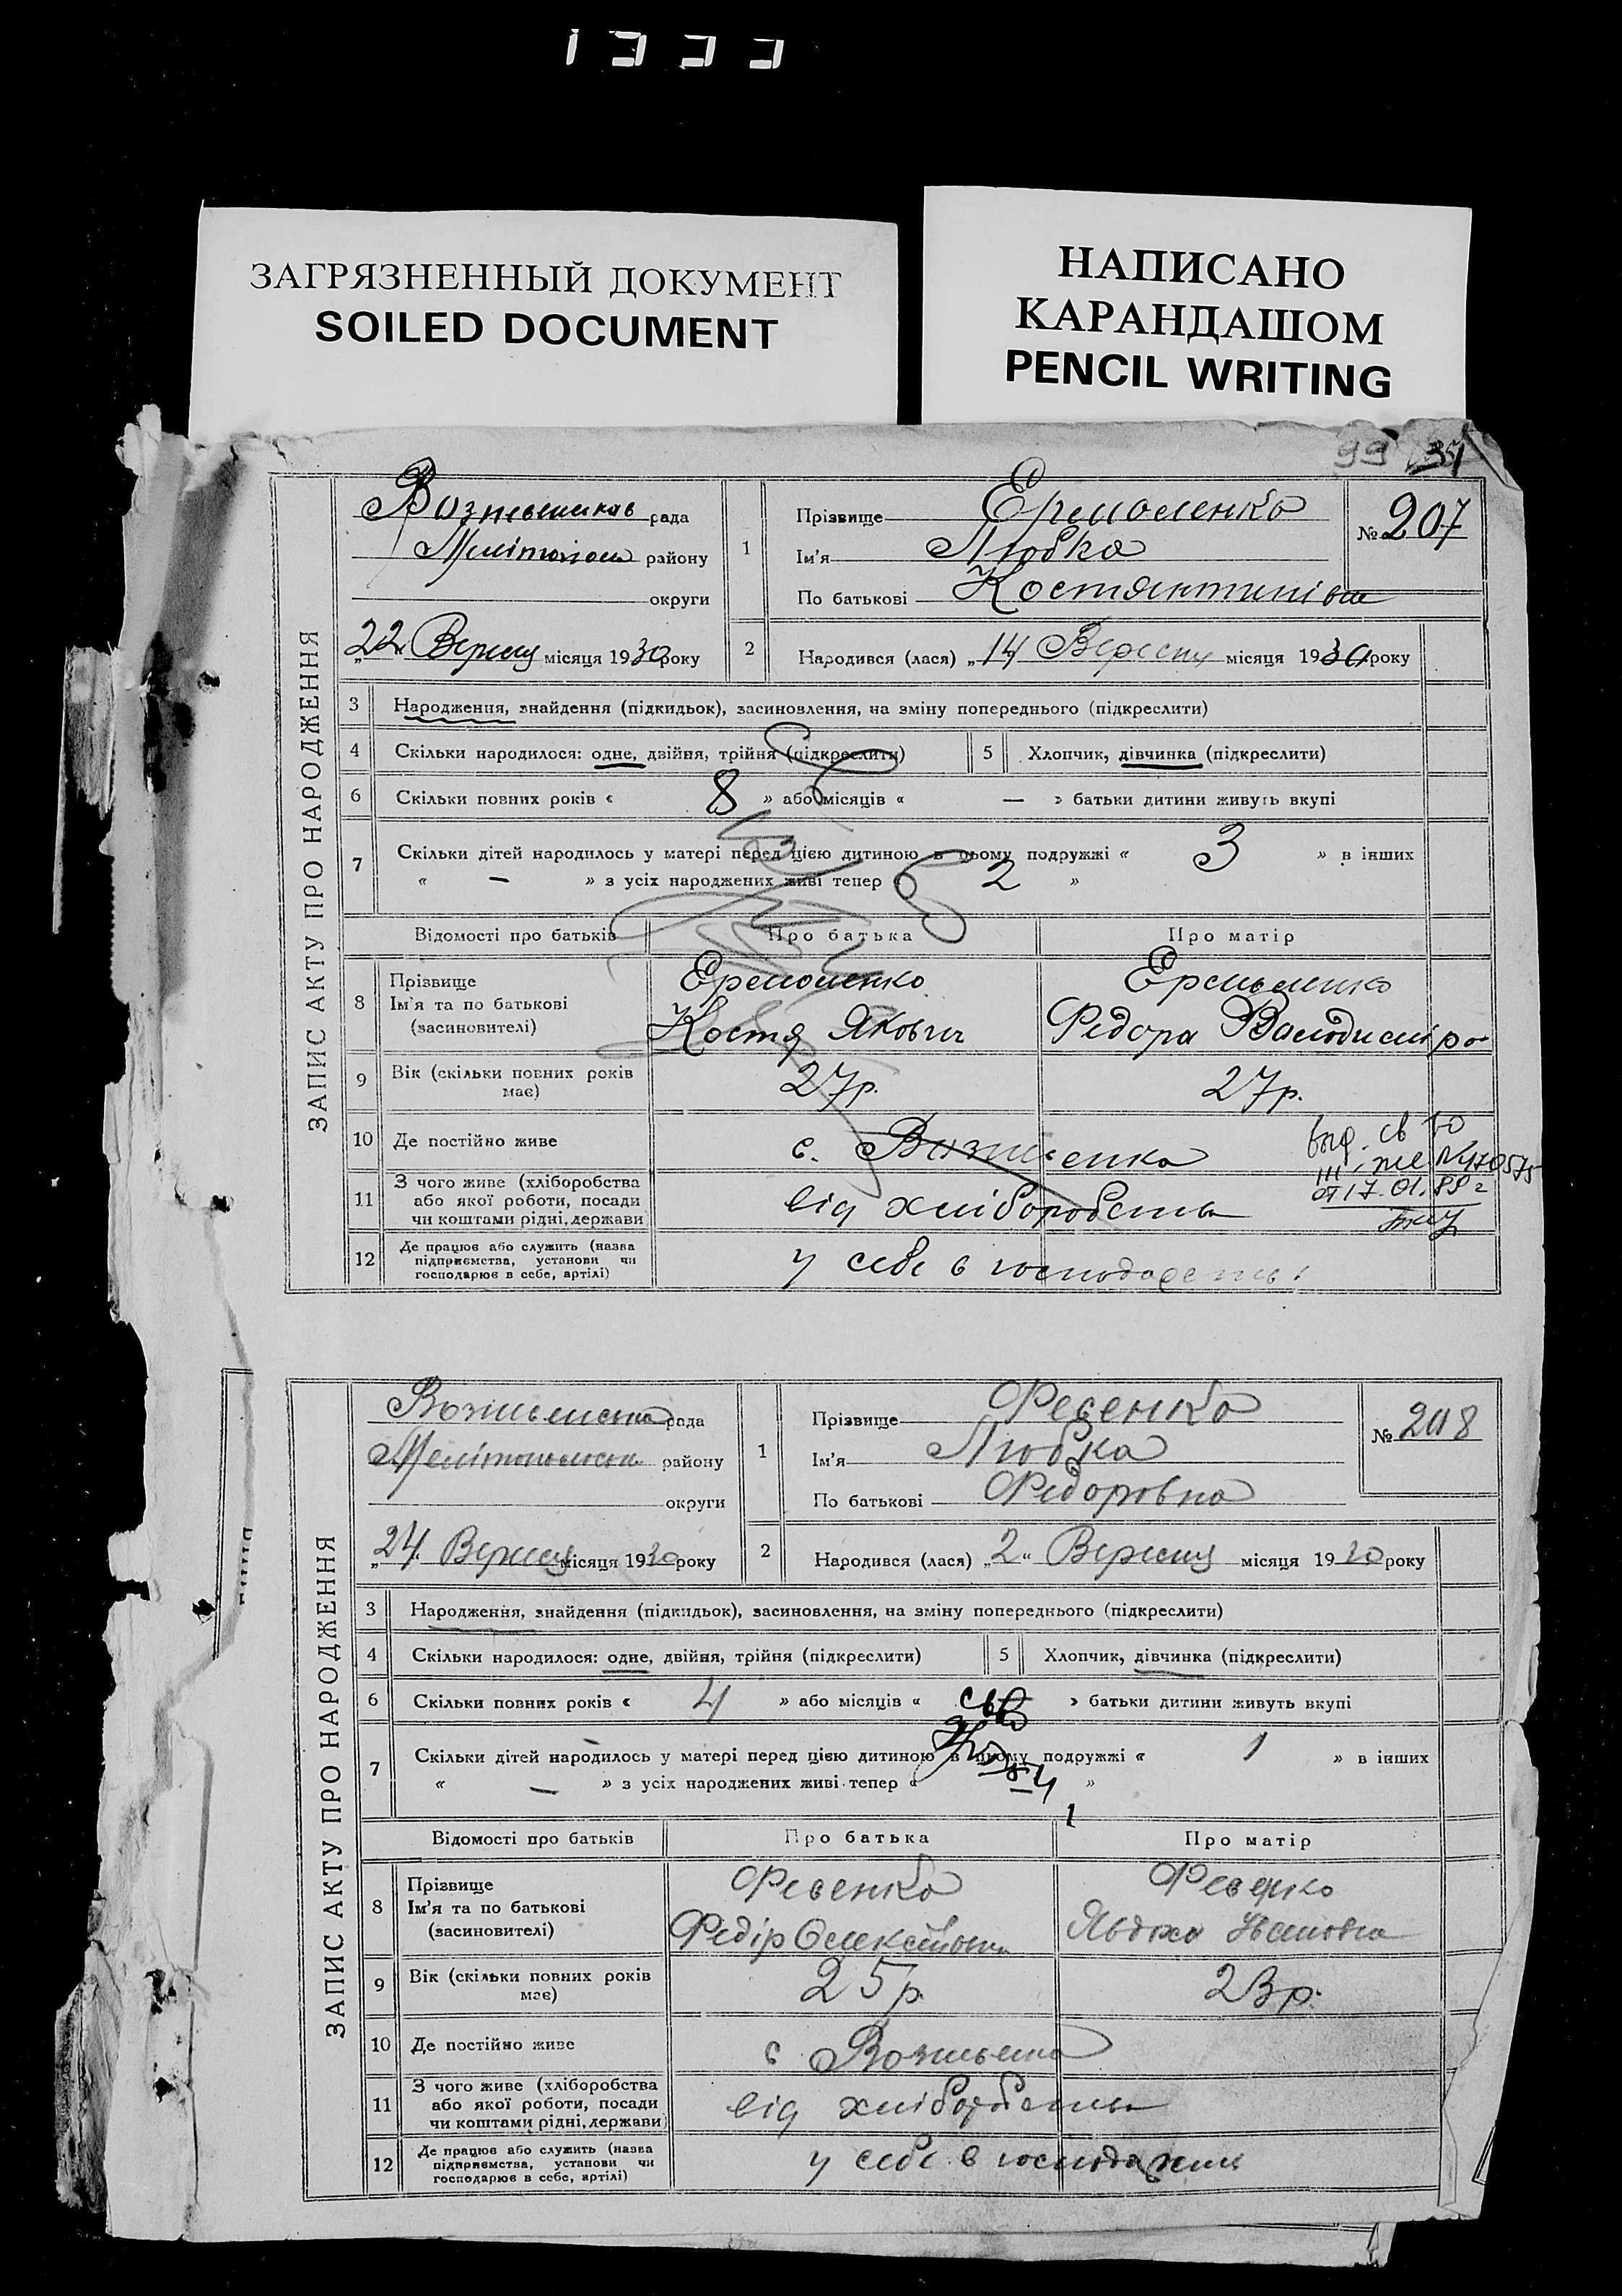 ЗАГРЯЗНЕННЫЙ ДОКУМЕНТ
SOILED DOCUMENT
НАПИСАНО
КАРАНДАШОМ
PENCIL WRITING
99
ЗАПИС АКТУ ПРО НАРОДЖЕННЯ
рада
району
округи
„22“ Вересня місяця 1930 року
1 Прізвище Ермоленко
Ім'я Любка
По батькові Костянтинівна
№ 207
2 Народився (лася) „14 Вересня місяця 1930 року
3 Народження, знайдення (підкидьок), засиновлення, на зміну попереднього (підкреслити)
4 Скільки народилося: одне, двійня, трійня (підкреслити) 5 Хлопчик, дівчинка (підкреслити)
6 Скільки повних років « 8 » або місяців « — » батьки дитини живуть вкупі
7 Скільки дітей народилось у матері перед цією дитиною в цьому подружжі « 3 » в інших
« — » з усіх народжених живі тепер 2 »
Відомості про батьків Про батька Про матір
8 Прізвище
Ім'я та по батькові
(засиновителі)
Ермоленко
Костя Якович
Ермоленко
Федора Володиміро
9 Вік (скільки повних років
має)
27р. 27р.
10 Де постійно живе с.
11 З чого живе (хліборобства
або якої роботи, посади
чи коштами рідні, держави
від хліборобства
12 Де працює або служить (назва
підприємства, установи чи
господарює в себе, артілі)
у себе в господарстві
от 17.01.85 г
ЗАПИС АКТУ ПРО НАРОДЖЕННЯ
рада
району
округи
„24. Вересня місяця 1930 року
1 Прізвище Фесенко
Ім'я Любка
По батькові Федоровна
№ 208
2 Народився (лася) „2“ Вересня місяця 1930 року
3 Народження, знайдення (підкидьок), засиновлення, на зміну попереднього (підкреслити)
4 Скільки народилося: одне, двійня, трійня (підкреслити) 5 Хлопчик, дівчинка (підкреслити)
6 Скільки повних років « 4 » або місяців « » батьки дитини живуть вкупі
7 Скільки дітей народилось у матері перед цією дитиною в цьому подружжі « 1 » в інших
« — » з усіх народжених живі тепер « 1 »
Відомості про батьків Про батька Про матір
8 Прізвище
Ім'я та по батькові
(засиновителі)
Фесенко
Федір
Фесенко
Явдоха Івановна
9 Вік (скільки повних років
має)
25р. 23р.
10 Де постійно живе с
11 З чого живе (хліборобства
або якої роботи, посади
чи коштами рідні, держави
від хліборобства
12 Де працює або служить (назва
підприємства, установи чи
господарює в себе, артілі)
у себе в господарстві